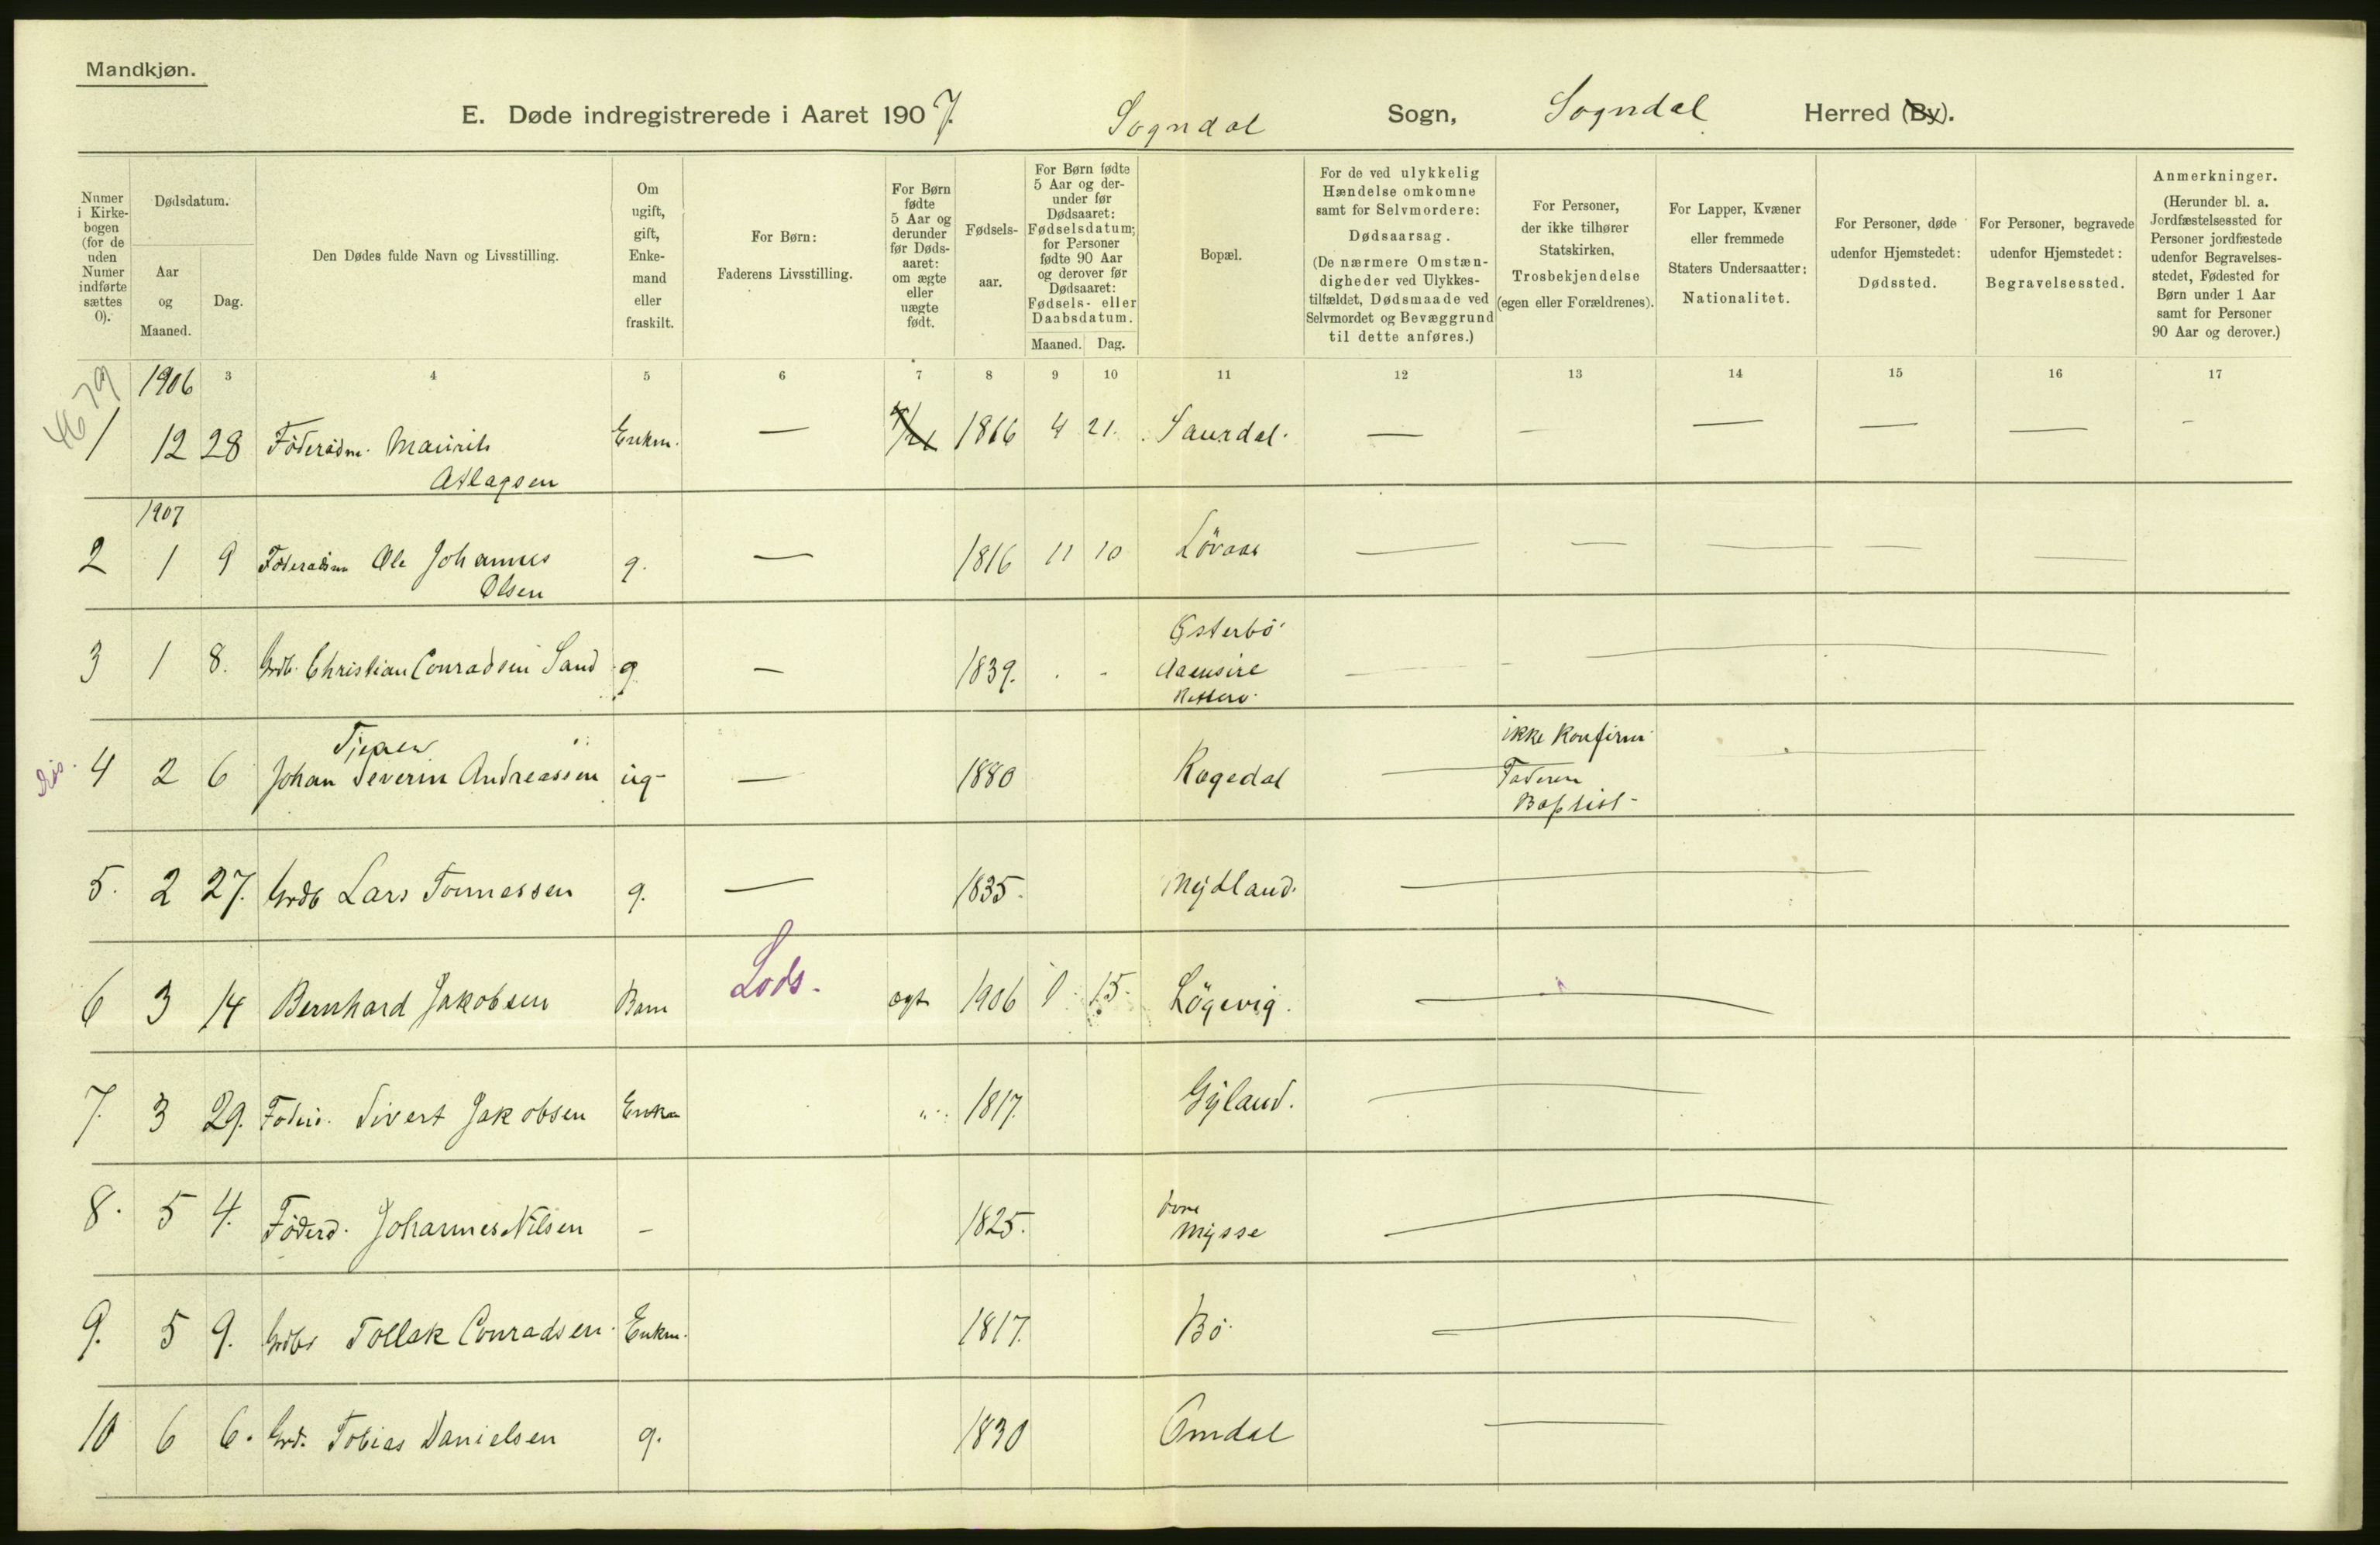 Mandkjøn.
E. Døde indregistrerede i Aaret 1907. Sogndal Sogn, Sogndal Herred (By).
Numer i Kirke-bogen (for de uden Numer indførte sættes 0).
Dødsdatum.
Aar og Maaned.
Dag.
Den Dødes fulde Navn og Livsstilling.
Om ugift, gift, Enke-mand eller fraskilt.
For Børn:
Faderens Livsstilling.
For Børn fødte 5 Aar og derunder før Døds-aaret: om ægte eller uægte født.
Fødsels-aar.
For Børn fødte 5 Aar og der-under før Dødsaaret: Fødselsdatum; for Personer fødte 90 Aar og derover før Dødsaaret: Fødsels- eller Daabsdatum.
Maaned. Dag.
Bopæl.
For de ved ulykkelig Hændelse omkomne samt for Selvmordere: Dødsaarsag.
(De nærmere Omstæn-digheder ved Ulykkes-tilfældet, Dødsmaade ved Selvmordet og Bevæggrund til dette anføres.)
For Personer, der ikke tilhører Statskirken, Trosbekjendelse (egen eller Forældrenes).
For Lapper, Kvæner eller fremmede Staters Undersaatter: Nationalitet.
For Personer, døde udenfor Hjemstedet: Dødssted.
For Personer, begravede udenfor Hjemstedet: Begravelsessted.
Anmerkninger.
(Herunder bl. a. Jordfæstelsessted for Personer jordfæstede udenfor Begravelses-stedet, Fødested for Børn under 1 Aar samt for Personer 90 Aar og derover.)
1906 3 4 5 6 7 8 9 10 11 12 13 14 15 16 17
1 12 28 Föderådm. Maurits Enkm. — 1816 4 21. Saurdal. — — — — — -
Atlagsen
1907
2 1 9 Föderaadm Ole Johannes g. — 1816 11 10 Lövaas — — — — —
Olsen
Österbö
3 1 8. Grdb. Christian Conradsen Sand g — 1839. Aaensire
Tjener
ikke konfirm
4 2 6 Johan Severin Andreassen ug- — 1880 Rogedal — Faderen
Baptist-
5. 2 27. Grdb Lars Tonnessen g. — 1835. Mydland. —
6 3 14 Bernhard Jakobsen Barn Lods. ægt 1906 15. Lögevig. —
7. 3 29. Föder. Sivert Jakobsen Enkm 1817. Gyland. —
övre
8. 5 4. Föderd. Johannes Nilsen - 1825. Mysse —
9. 5 9. Grdbr Tollak Conradsen. Enkm. 1817. Bö. —
10 6 6. Grd. Tobias Danielsen g. 1830 Omdal —